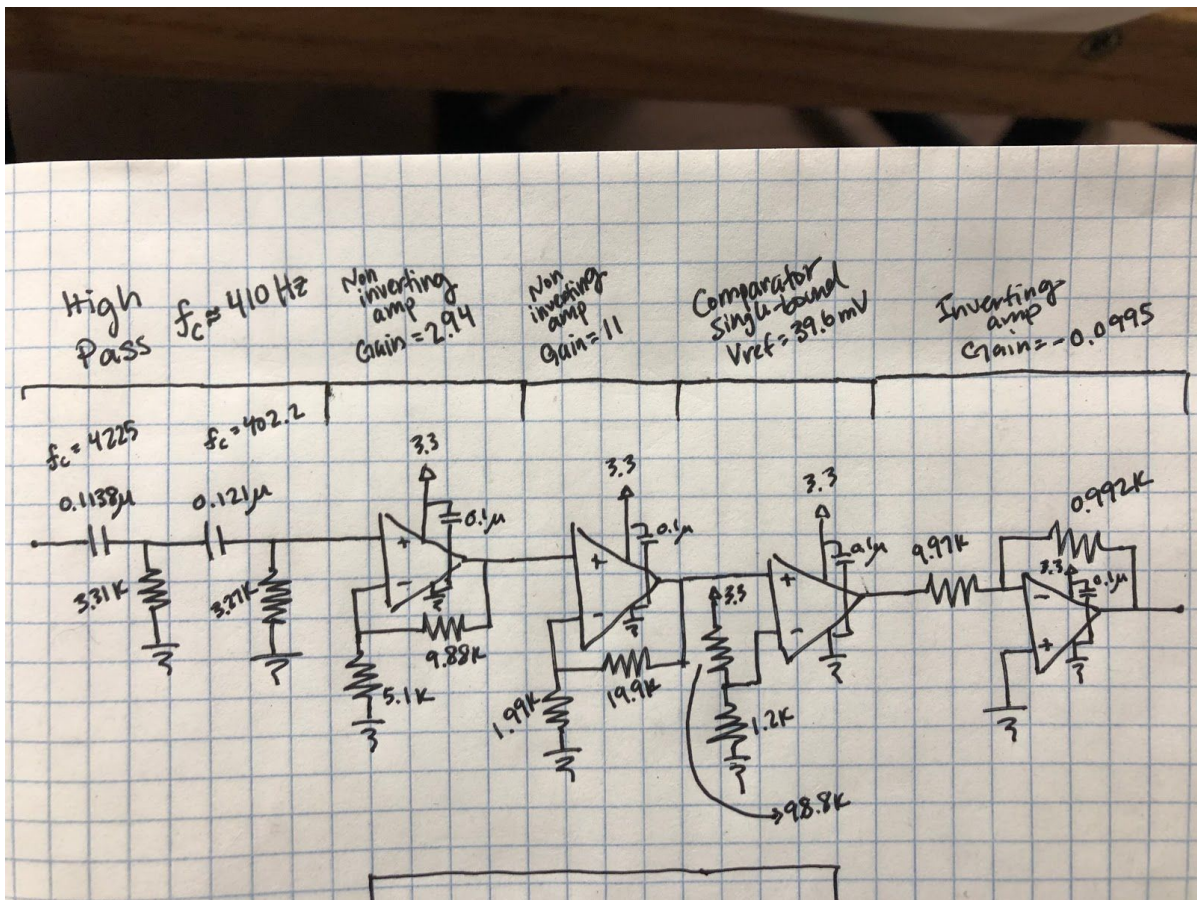 High
Pass
fc≈410 Hz
Non
inverting
amp
Gain = 2.94
Non
inverting
amp
Gain = 11
Comparator
single-bound
Vref = 39.6mV
Inverting
amp
Gain = -0.0995
fc = 4225
fc = 402.2
0.1138μ
0.121μ
3.31K
3.27K
3.3
0.1μ
9.88K
5.1K
3.3
0.1μ
19.9K
1.99K
3.3
1.2K
98.8K
3.3
0.1μ
9.97K
0.992K
3.3
0.1μ